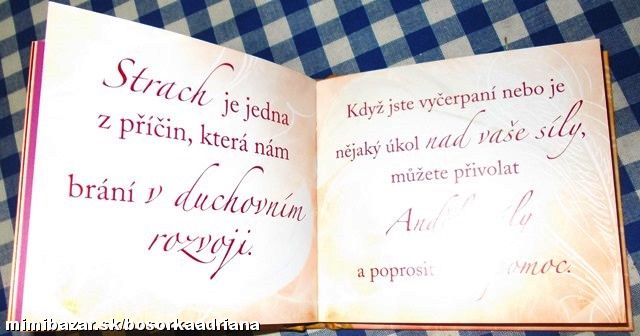 Strach je jedna
z příčin, která nám
brání v duchovním
rozvoji.
Když jste vyčerpaní nebo je
nějaký úkol nad vaše síly,
můžete přivolat
a poprosit pomoc.
mimibazar.sk/bosorkaadriana